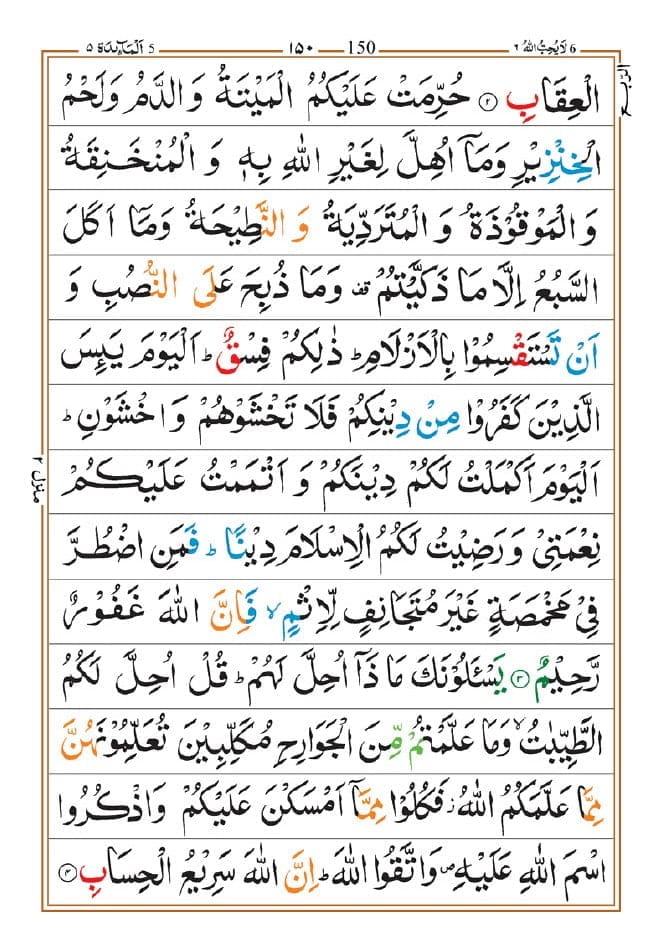 5 اَلْمَآئِدَة ٥
150 ١٥٠
6 لَا يُحِبُّ اللّٰهُ ٦
الرّبع
الْعِقَابِ ۝٢ حُرِّمَتْ عَلَيْكُمُ الْمَيْتَةُ وَ الدَّمُ وَلَحْمُ
الْخِنْزِيْرِ وَمَاۤ اُهِلَّ لِغَيْرِ اللّٰهِ بِهٖ وَ الْمُنْخَنِقَةُ
وَ الْمَوْقُوْذَةُ وَ الْمُتَرَدِّيَةُ وَ النَّطِيْحَةُ وَمَاۤ اَكَلَ
السَّبُعُ اِلَّا مَا ذَكَّيْتُمْ قف وَمَا ذُبِحَ عَلَى النُّصُبِ وَ
اَنْ تَسْتَقْسِمُوْا بِالْاَزْلَامِ ؕ ذٰلِكُمْ فِسْقٌ ؕ اَلْيَوْمَ يَئِسَ
الَّذِيْنَ كَفَرُوْا مِنْ دِيْنِكُمْ فَلَا تَخْشَوْهُمْ وَ اخْشَوْنِ ؕ
اَلْيَوْمَ اَكْمَلْتُ لَكُمْ دِيْنَكُمْ وَ اَتْمَمْتُ عَلَيْكُمْ
نِعْمَتِيْ وَ رَضِيْتُ لَكُمُ الْاِسْلَامَ دِيْنًا ؕ فَمَنِ اضْطُرَّ
فِيْ مَخْمَصَةٍ غَيْرَ مُتَجَانِفٍ لِّاِثْمٍ ۙ فَاِنَّ اللّٰهَ غَفُوْرٌ
رَّحِيْمٌ ۝٣ يَسْئَلُوْنَكَ مَا ذَاۤ اُحِلَّ لَهُمْ ؕ قُلْ اُحِلَّ لَكُمُ
الطَّيِّبٰتُ ۙ وَمَا عَلَّمْتُمْ مِّنَ الْجَوَارِحِ مُكَلِّبِيْنَ تُعَلِّمُوْنَهُنَّ
مِمَّا عَلَّمَكُمُ اللّٰهُ ؗ فَكُلُوْا مِمَّاۤ اَمْسَكْنَ عَلَيْكُمْ وَاذْكُرُوا
اسْمَ اللّٰهِ عَلَيْهِ ۪ وَاتَّقُوا اللّٰهَ ؕ اِنَّ اللّٰهَ سَرِيْعُ الْحِسَابِ ۝٤
منزل ٢